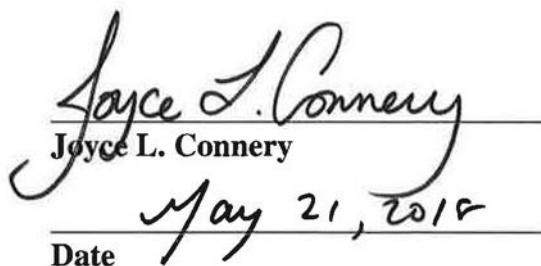 Joyce L. Connery
Joyce L. Connery
May 21, 2018
Date